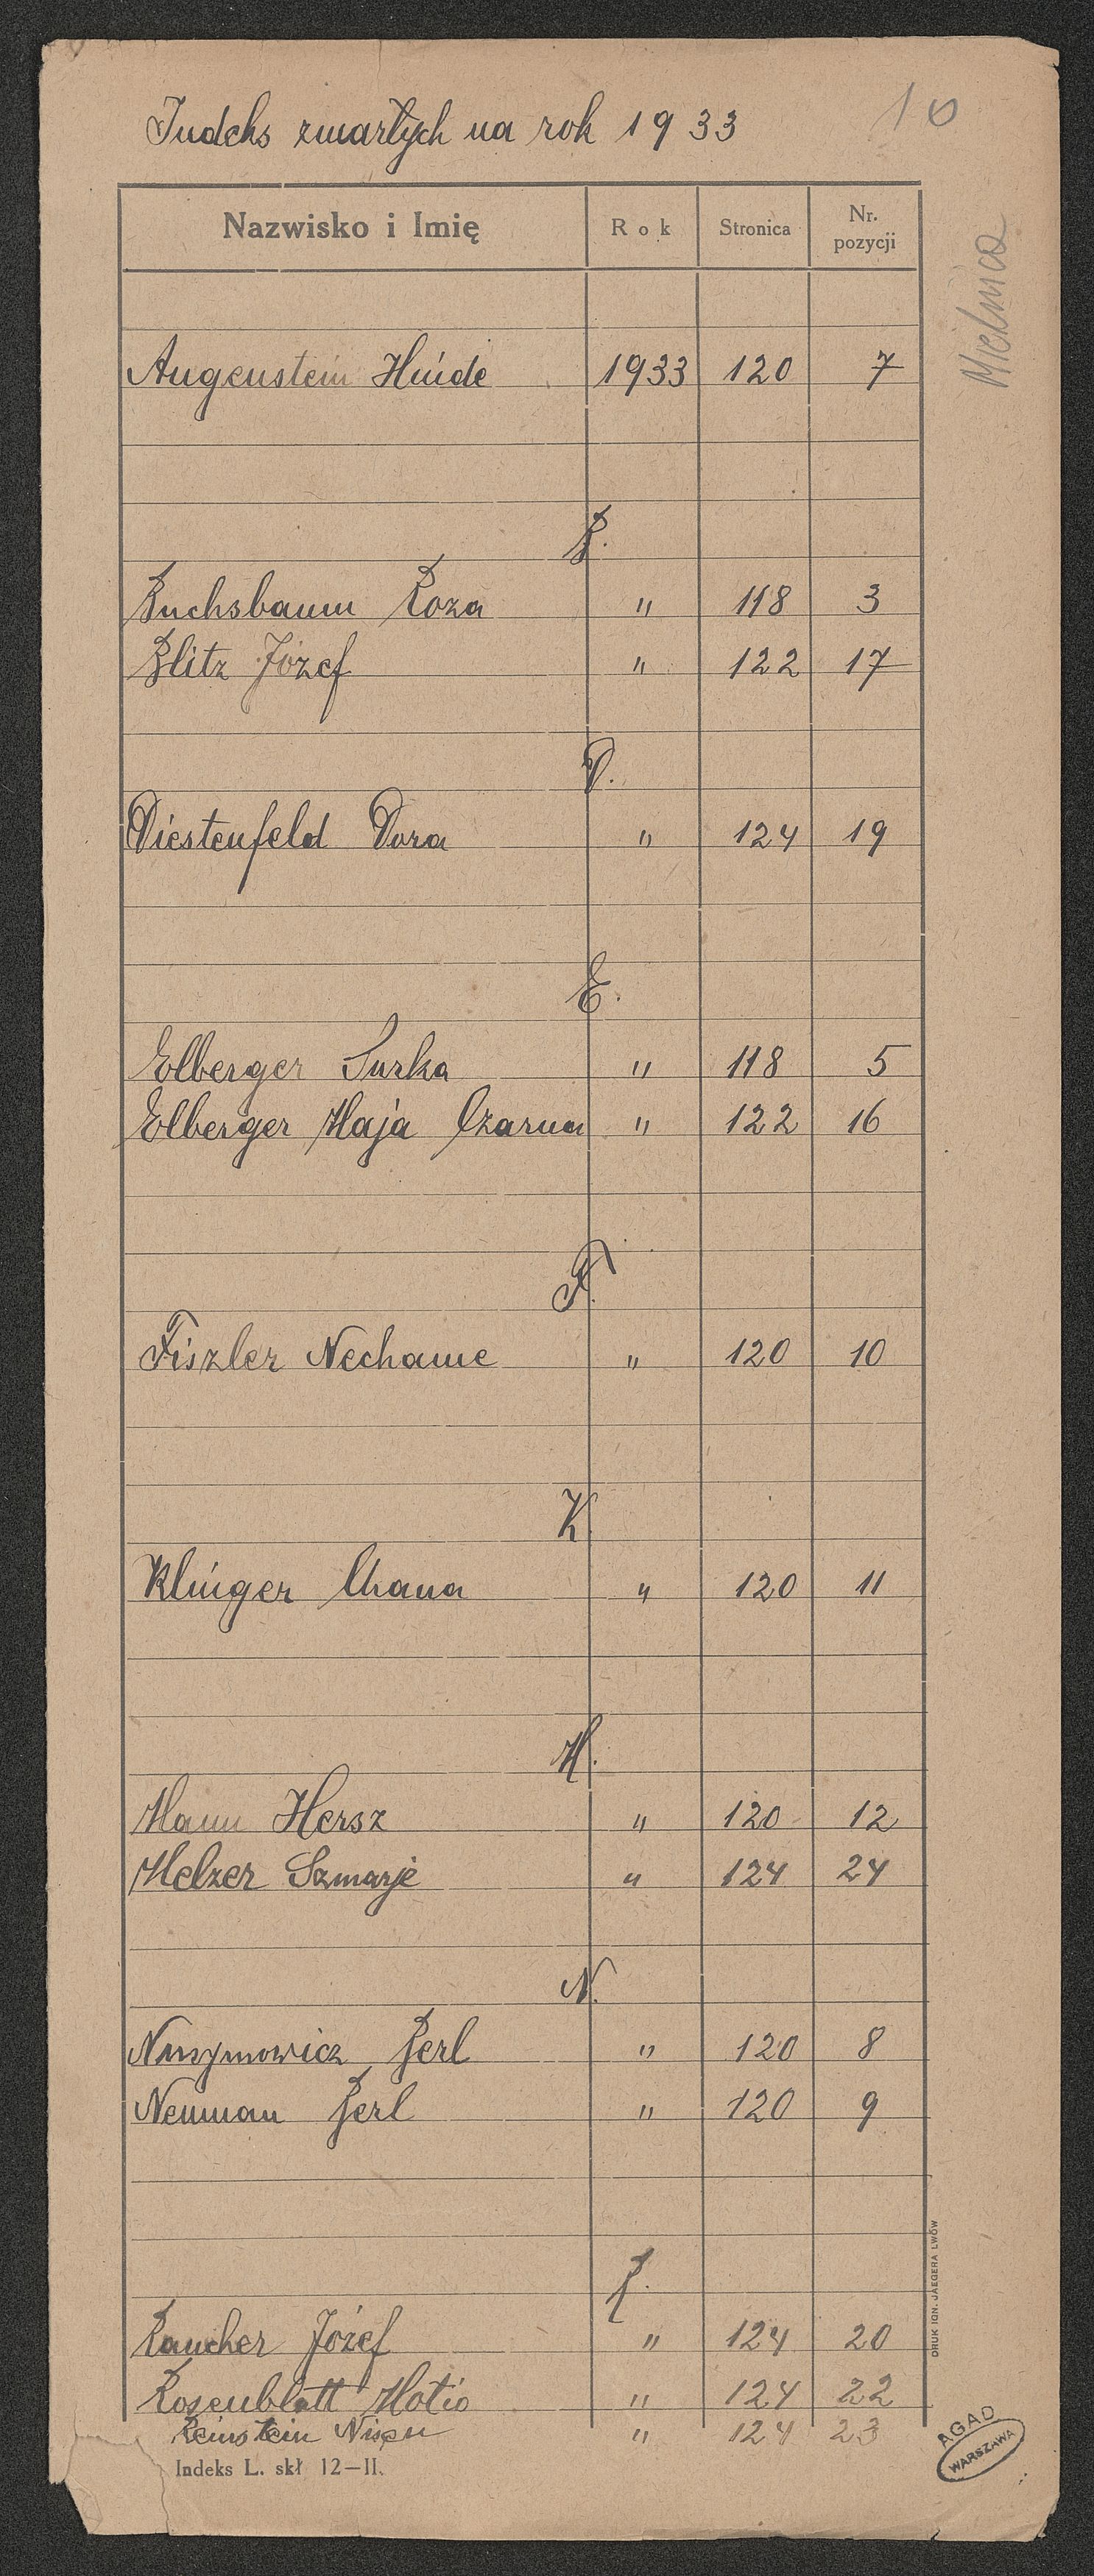 Indeks zmarłych na rok 1933
10
Nazwisko i Imię Rok Stronica Nr. pozycji
Mielnica
Augenstein Hinde 1933 120 7
B.
Buchsbaum Roza " 118 3
Blitz Józef " 122 17
D.
Diestenfeld Dora " 124 19
E.
Elberger Surka " 118 5
Elberger Maja Czarna " 122 16
F.
Fiszler Nechame " 120 10
K.
Klinger Chana " 120 11
M.
Mann Hersz " 120 12
Melzer Szmarje " 124 24
N.
Berl " 120 8
Neuman Berl " 120 9
R.
Raucher Józef " 124 20
Rosenblatt Motio " 124 22
Reinstein Nisen " 124 23
Indeks L. skł 12—II.
DRUK IGN. JAEGERA LWÓW
AGAD
WARSZAWA